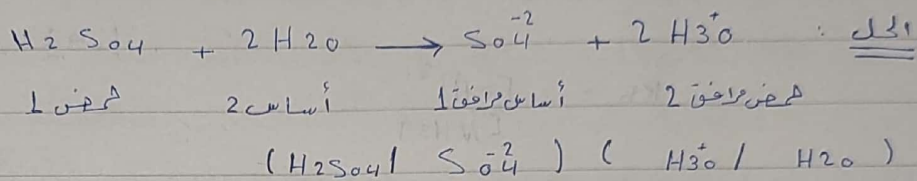 الحل : H2SO4 + 2H2O → SO4⁻² + 2H3O⁺
حمض 1 أساس 2 أساس مرافق 1 حمض مرافق 2
(H2SO4 / SO4⁻²) (H3O⁺ / H2O)